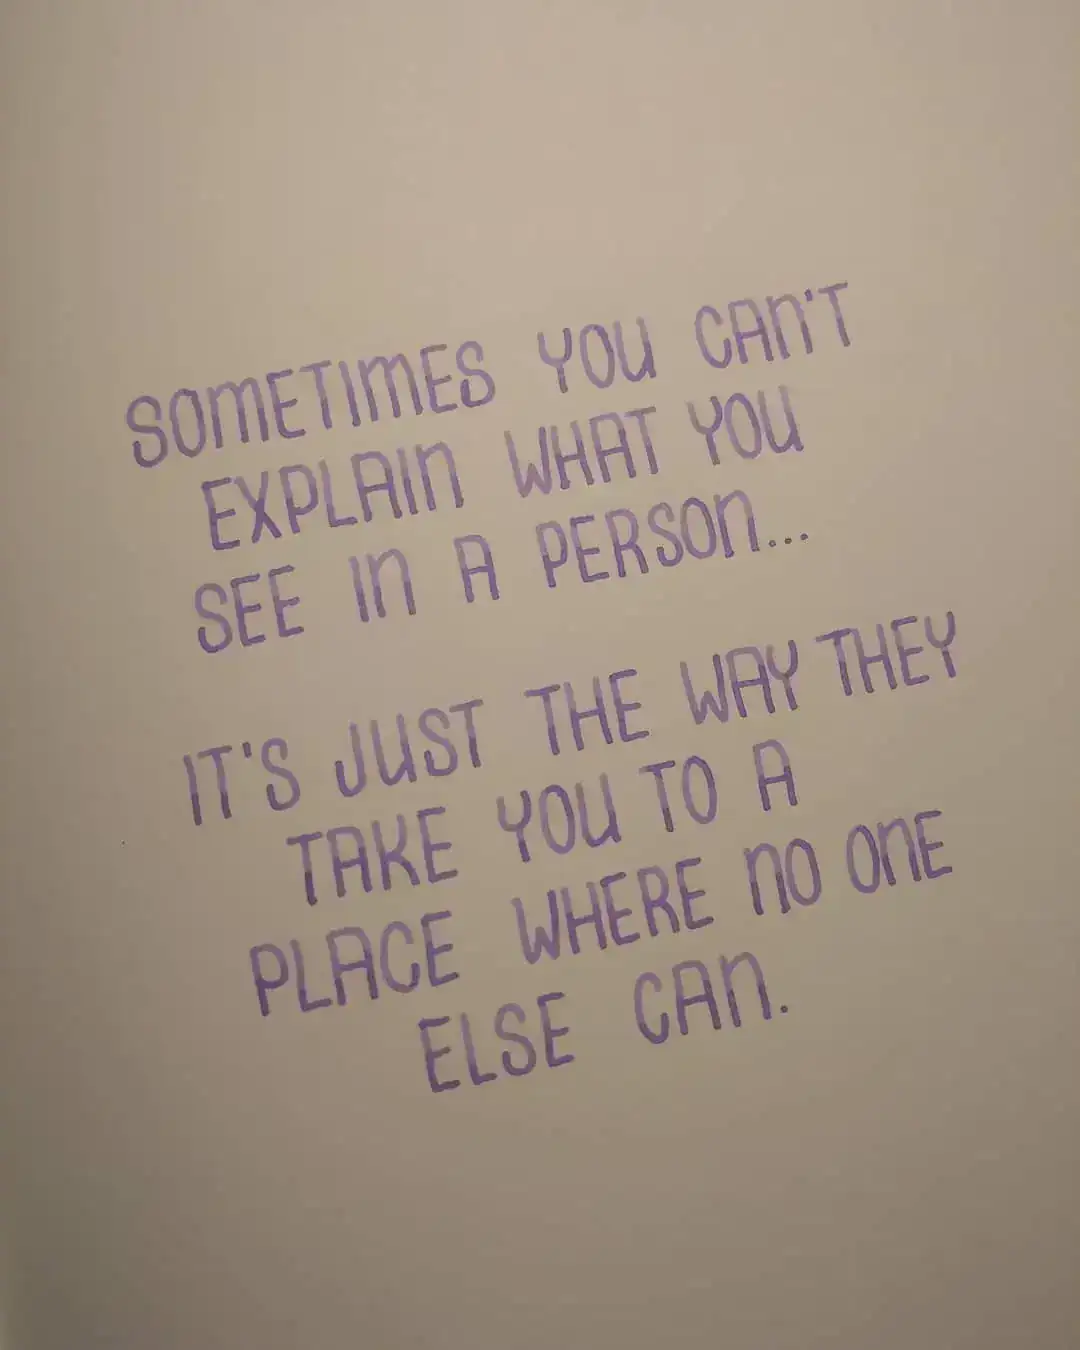 SOMETIMES YOU CAN'T
EXPLAIN WHAT YOU
SEE IN A PERSON...
IT'S JUST THE WAY THEY
TAKE YOU TO A
PLACE WHERE NO ONE
ELSE CAN.